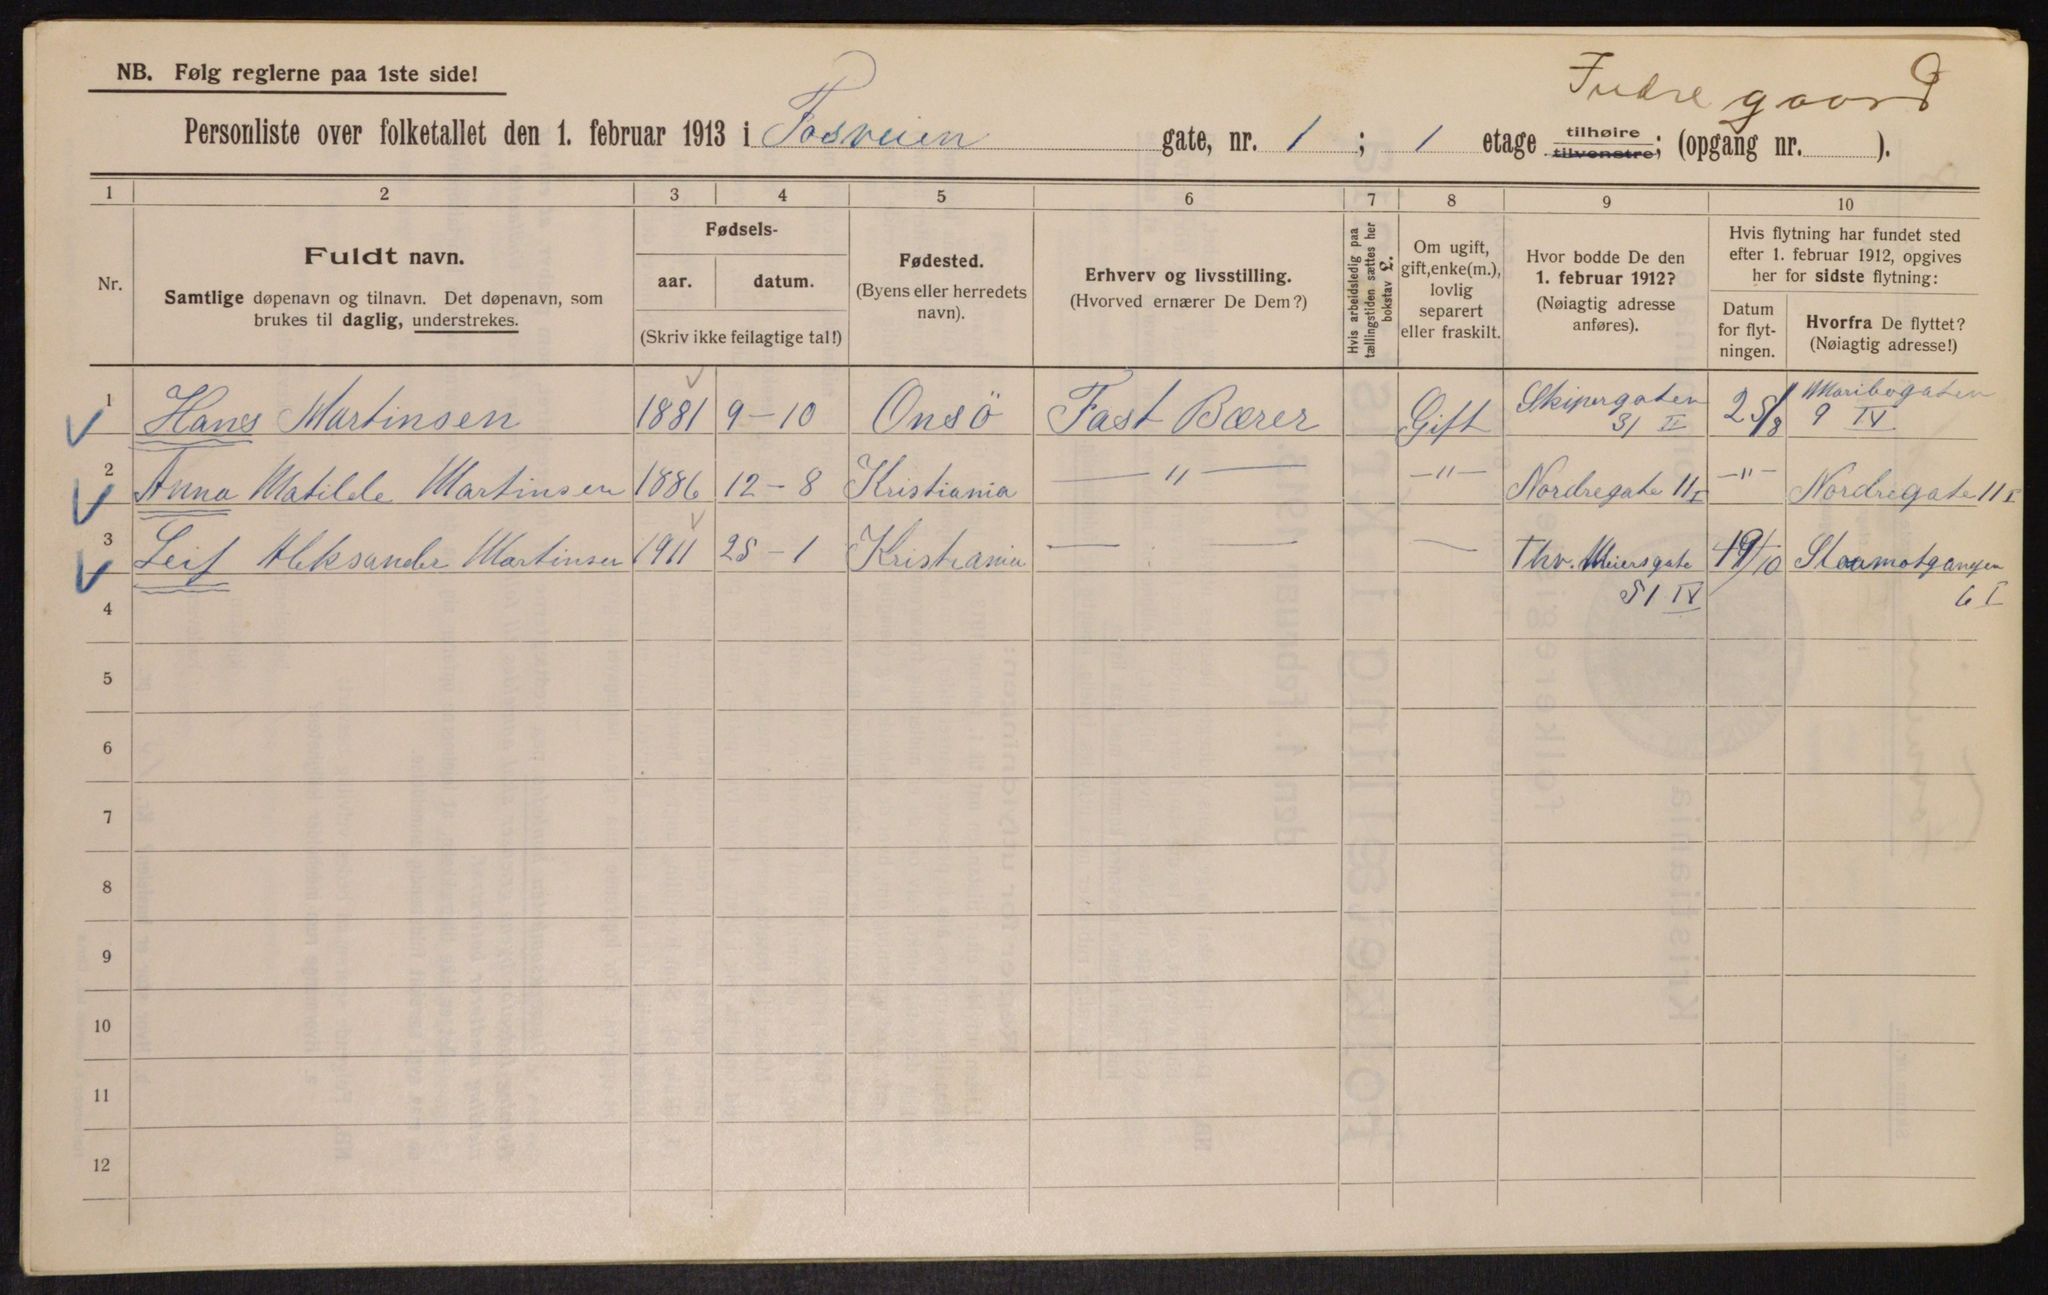 NB. Følg reglerne paa 1ste side!
Indre gaard
Personliste over folketallet den 1. februar 1913 i Fosveien gate, nr. 1 ; 1 etage tilhøire tilvenstre; (opgang nr. ).
1 2 3 4 5 6 7 8 9 10
Nr.
Fuldt navn.
Samtlige døpenavn og tilnavn. Det døpenavn, som
brukes til daglig, understrekes.
Fødsels-
aar. datum.
(Skriv ikke feilagtige tal!)
Fødested.
(Byens eller herredets
navn).
Erhverv og livsstilling.
(Hvorved ernærer De Dem?)
Hvis arbeidsledig paa
tællingstiden sættes her
bokstav L.
Om ugift,
gift, enke(m.),
lovlig
separert
eller fraskilt.
Hvor bodde De den
1. februar 1912?
(Nøiagtig adresse
anføres).
Hvis flytning har fundet sted
efter 1. februar 1912, opgives
her for sidste flytning:
Datum
for flyt-
ningen.
Hvorfra De flyttet?
(Nøiagtig adresse!)
1 Hans Martinsen 1881 9-10 Onsö Fast Bærer Gift Skipergaten 31 II 25/8 Maribogaten 9 IV
2 Anna Matilde Martinsen 1886 12-8 Kristiania —"— —"— Nordregate 11 I —"— Nordregate 11 I
3 Leif Aleksander Martinsen 1911 25-1 Kristiania — — — Thv. Meiersgate 51 IV 19/10 6 I
4
5
6
7
8
9
10
11
12